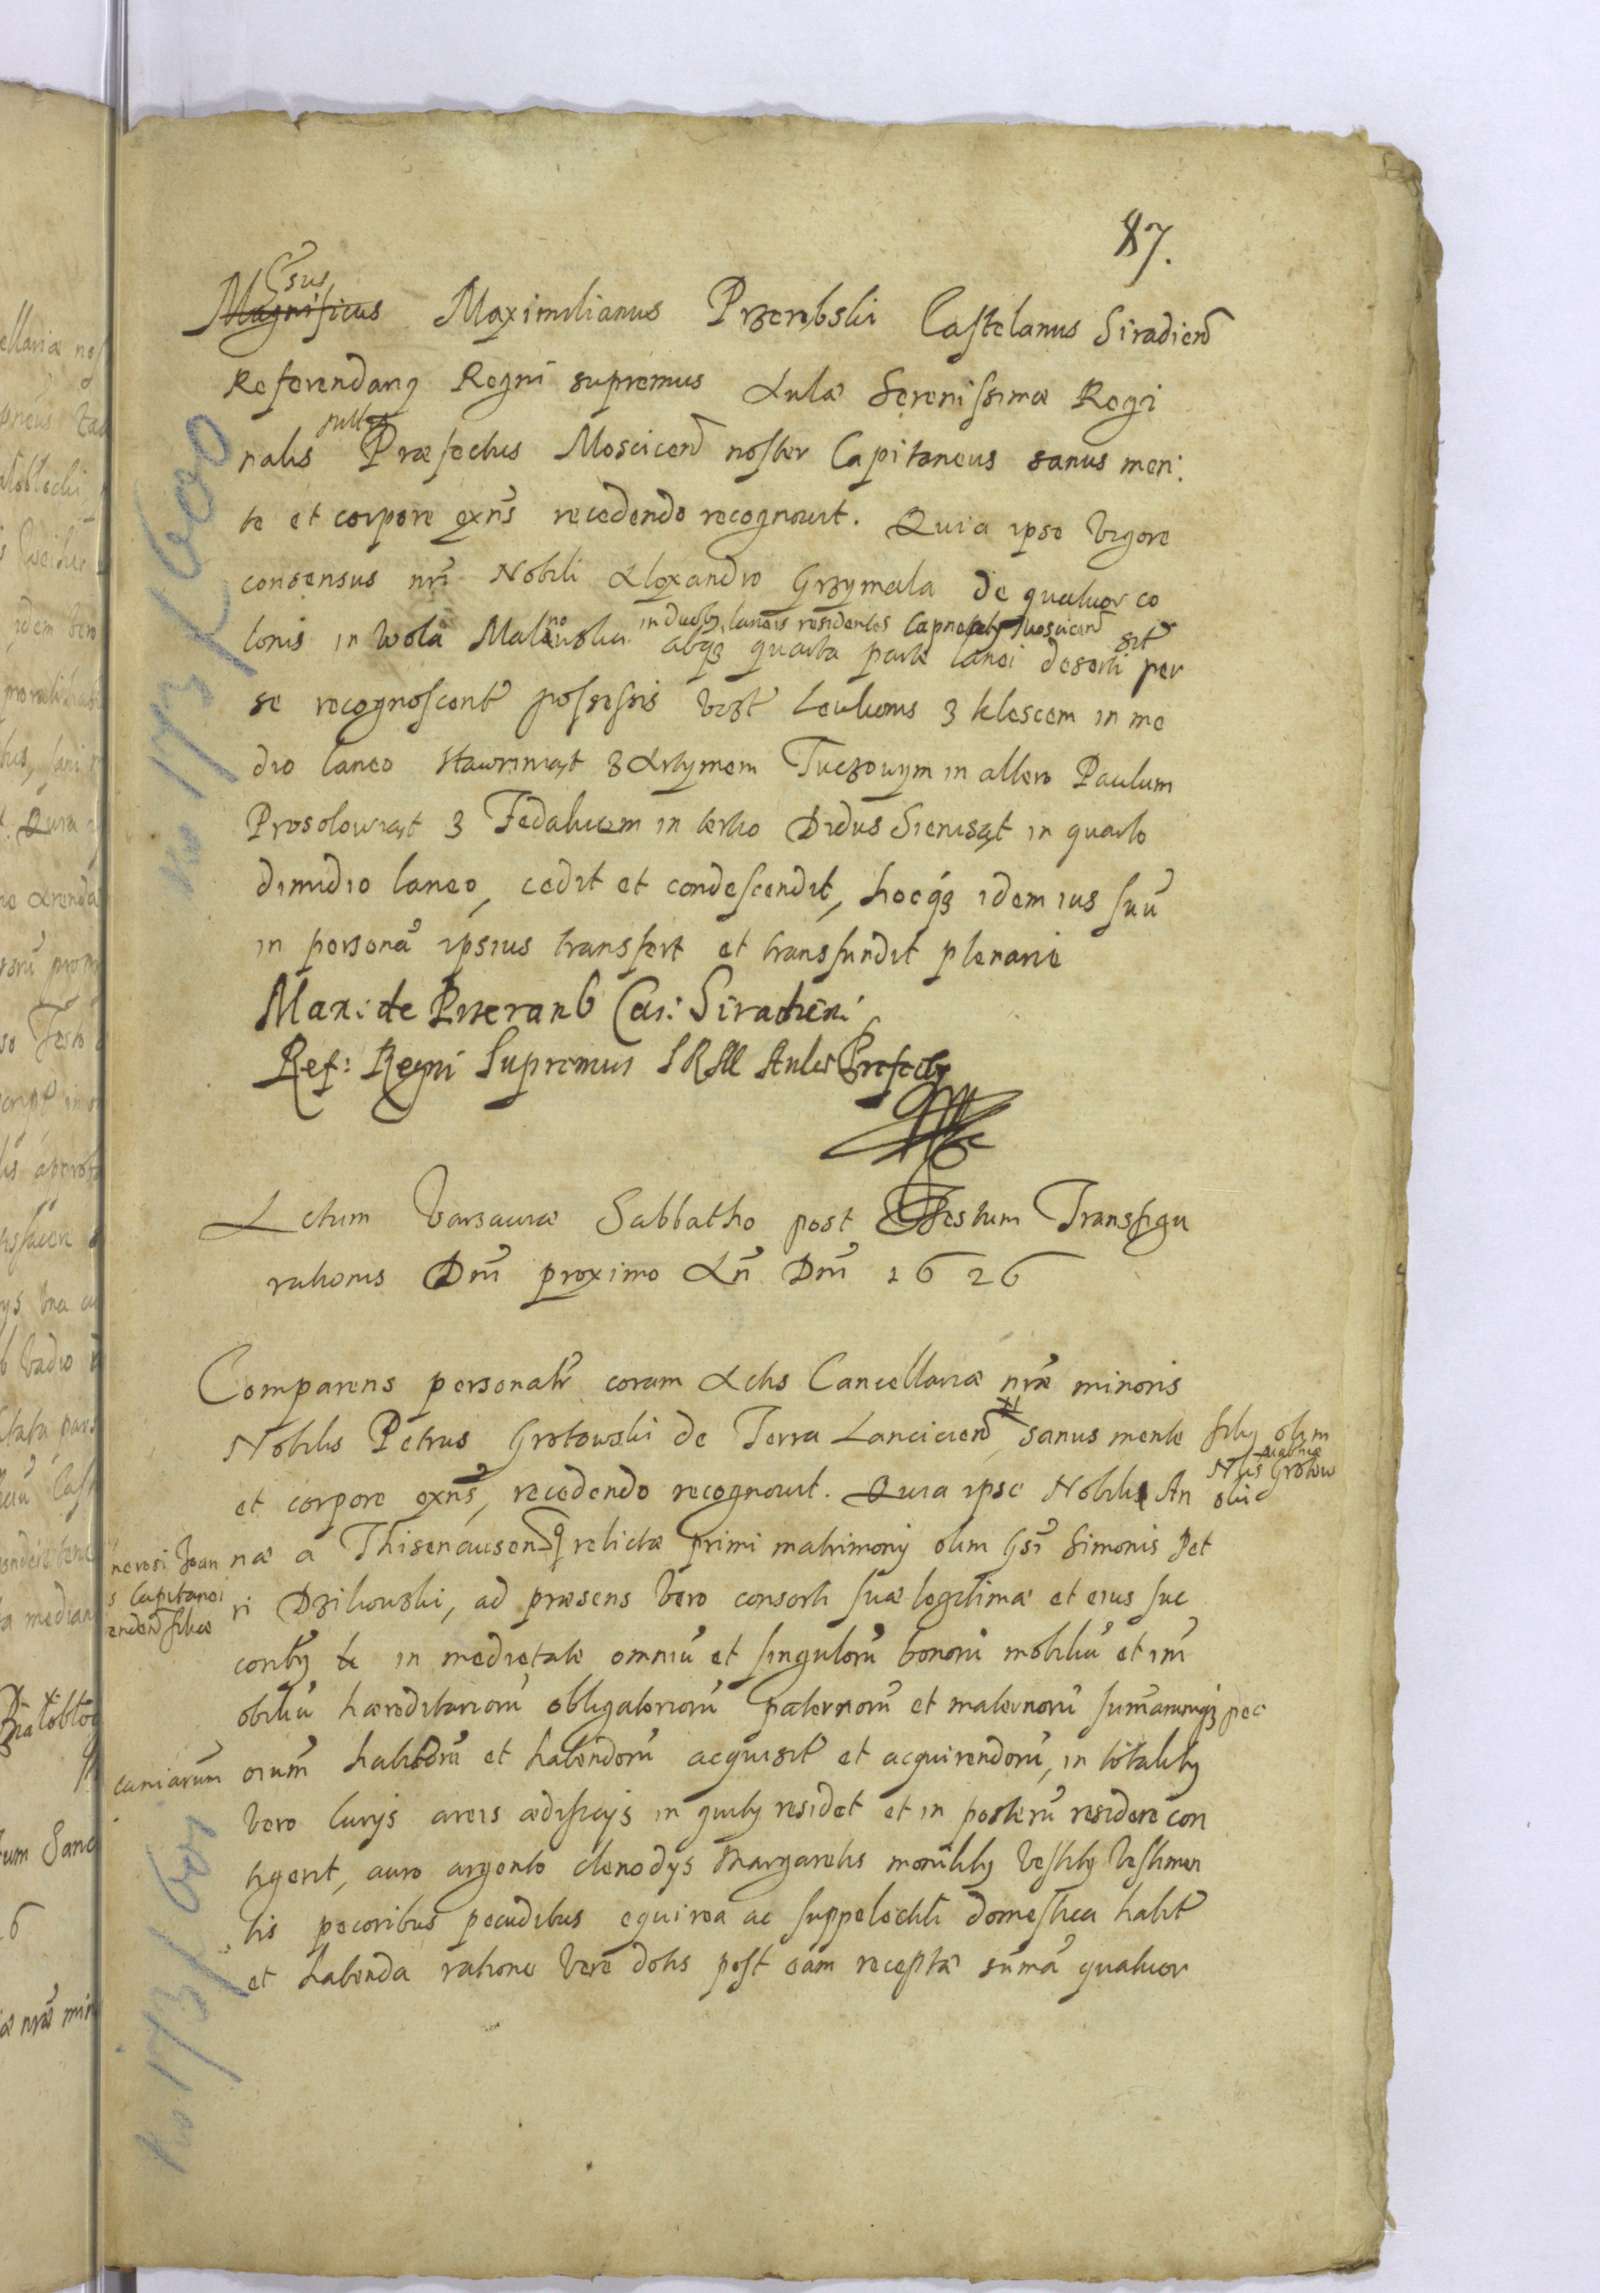 87.
Gsus
Magnificus Maximilianus Przerębski Castelanus Siradien
Referendarius Regni supremus Aulæ Serenissimæ Regi
nalis Præfectus Moscicen noster Capitaneus sanus men:
te et corpore exns recedendo recognovit. Quia ipse vigore
consensus nri Nobili Alexandro Grzymala de quatuor co
in duobus laneis residentes Moscicen sit
lonis in Wola Malnowska absque quarta parte lanei deserti per
se recognoscent possessis vezt Leukonis z klescem in me
dio laneo Hawriniąt z Artymem Tuczowym in altero Paulum
Prosolowiąt z Fedakiem in tertio Didus Sienisąt in quarto
dimidio laneo, cedit et condescendit, hocque idem ius suu
in persona ipsius transfert et transfundit plenarie
Max: de Przeramb Cas: Siradien:
Ref: Regni Supremus SRM Aulæ Præfectus
Actum Varsaviæ Sabbatho post Festum Transfigu
rationis Dni proximo An Dni 1626
Comparens personalr coram Actis Cancellariæ nræ minoris
Nobilis Petrus Grotowski de Terra Lancicien sanus mente
filius olim
Nlis Grotow
skie
et corpore exns, recedendo recognovit. Quia ipse Nobili An
næ a Thisenausen relictæ primi matrimonij olim Gsi Simonis Pet
nerosi Joan
s Capitanei
enden filiæ
ri Dzikowski, ad præsens vero consorti suæ legitimæ et eius suc
coribus in medietate omniu et singuloru bonoru mobiliu et im
obiliu hæreditarioru obligatorioru paternoru et maternoru sumarumque pec
cuniarum
oium habitoru et habendoru acquisit et acquirendoru, in totalibus
vero curijs areis ædificijs in quibus residet et in posteru residere con
tigerit, auro argento clenodys Margaretis monilibus vestibus vestimen
tis pecoribus pecudibus equirea ac suppelectili domestica habit
et habenda ratione veræ dotis post eam receptæ suma quatuor
No 173/600
No 173/601